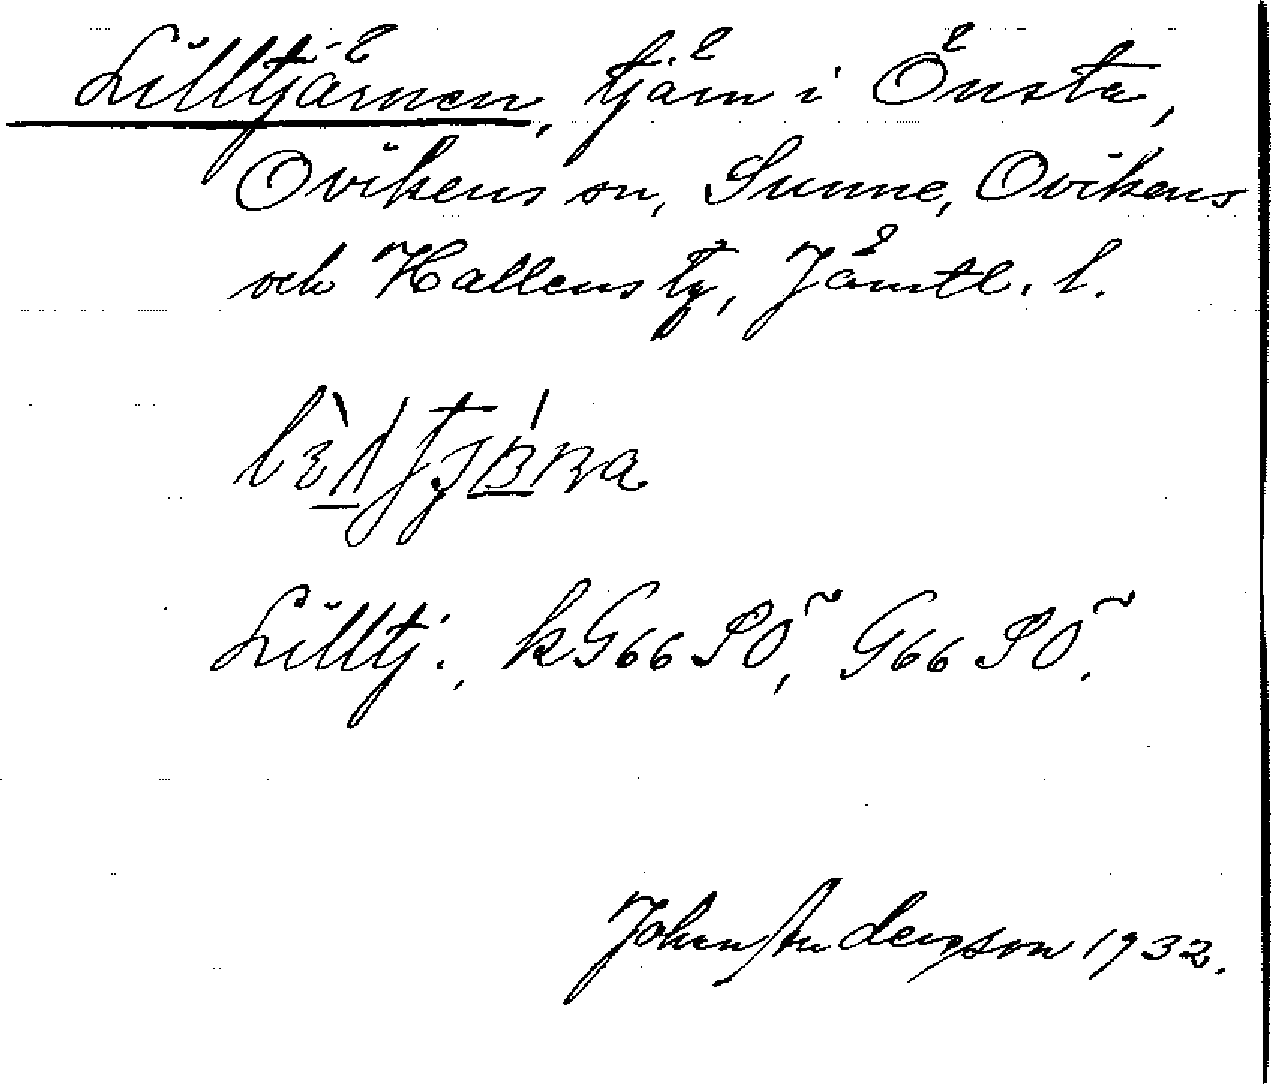 Lilltjärnen, tjärn i Önsta,
Ovikens sn, Sunne, Ovikens
och Hallens tg, Jämtl. l.
Lilltj., kG66 SÖ, G66 SÖ.
John Andersson 1932.